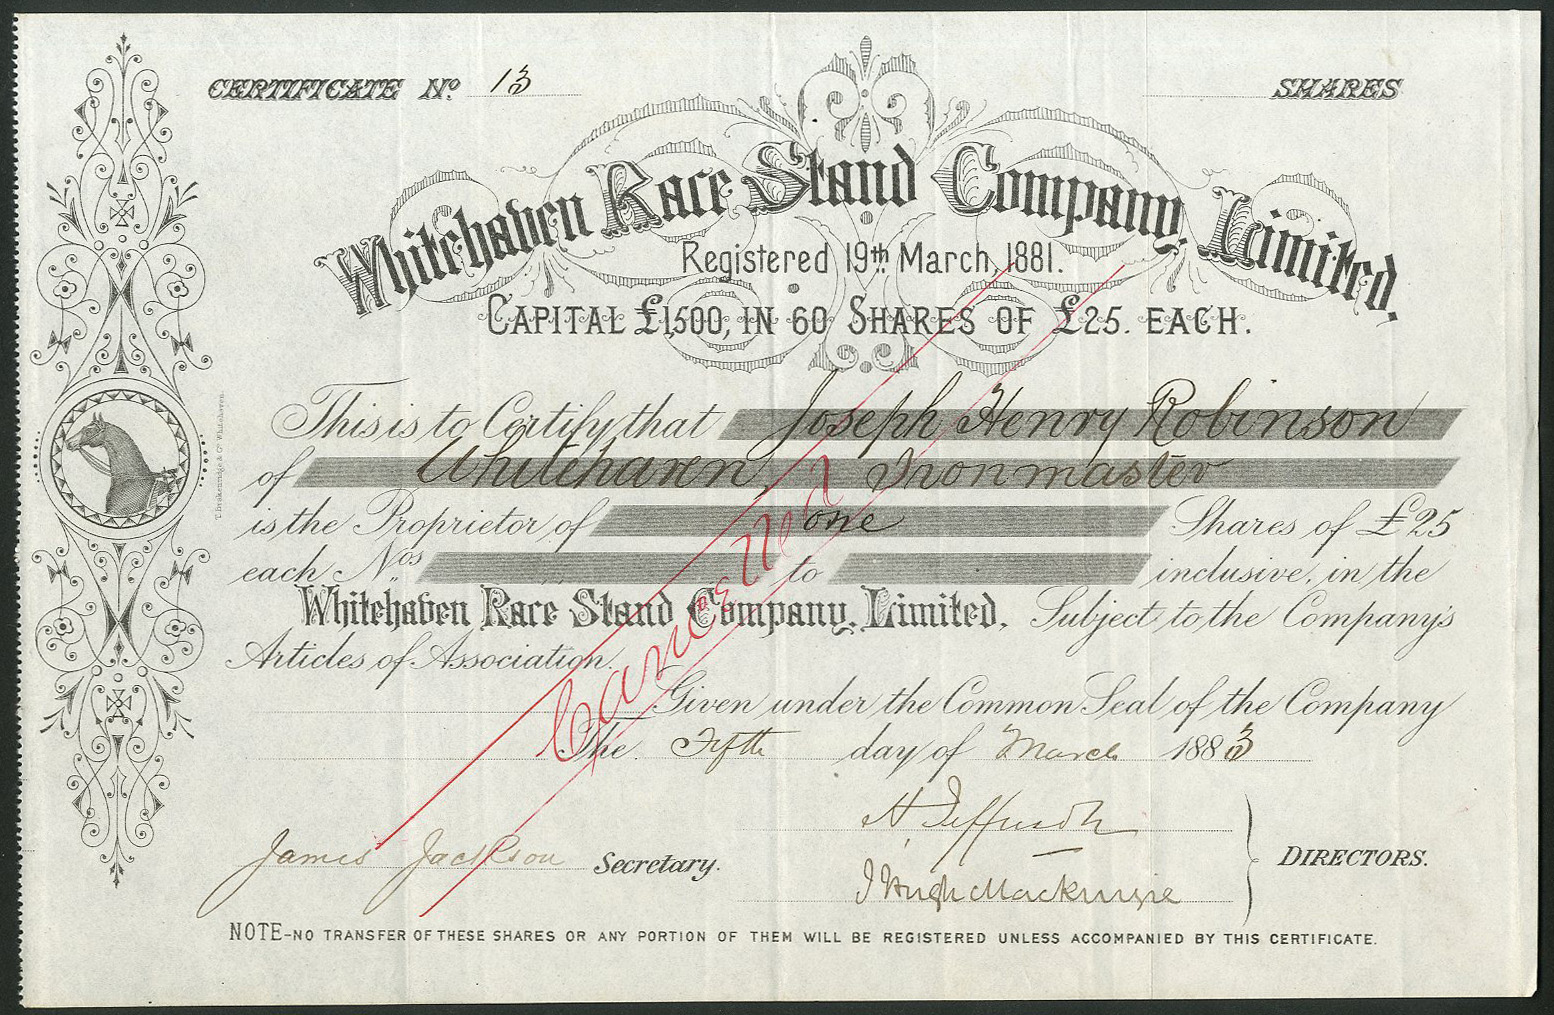 CERTIFICATE No 13 SHARES
Whitehaven Race Stand Company, Limited.
Registered 19th March, 1881.
CAPITAL £1,500, IN 60 SHARES OF £25. EACH.
This is to Certify that Joseph Henry Robinson
of Whitehaven, Ironmaster
is the Proprietor of one Shares of £25
each Nos to inclusive, in the
Whitehaven Race Stand Company, Limited, Subject to the Company's
Articles of Association.
Cancelled
Given under the Common Seal of the Company
The Fifth day of March 1883
James Jackson Secretary.
H
J Hugh Mackenzie
DIRECTORS.
NOTE-NO TRANSFER OF THESE SHARES OR ANY PORTION OF THEM WILL BE REGISTERED UNLESS ACCOMPANIED BY THIS CERTIFICATE.
& Co Whitehaven.